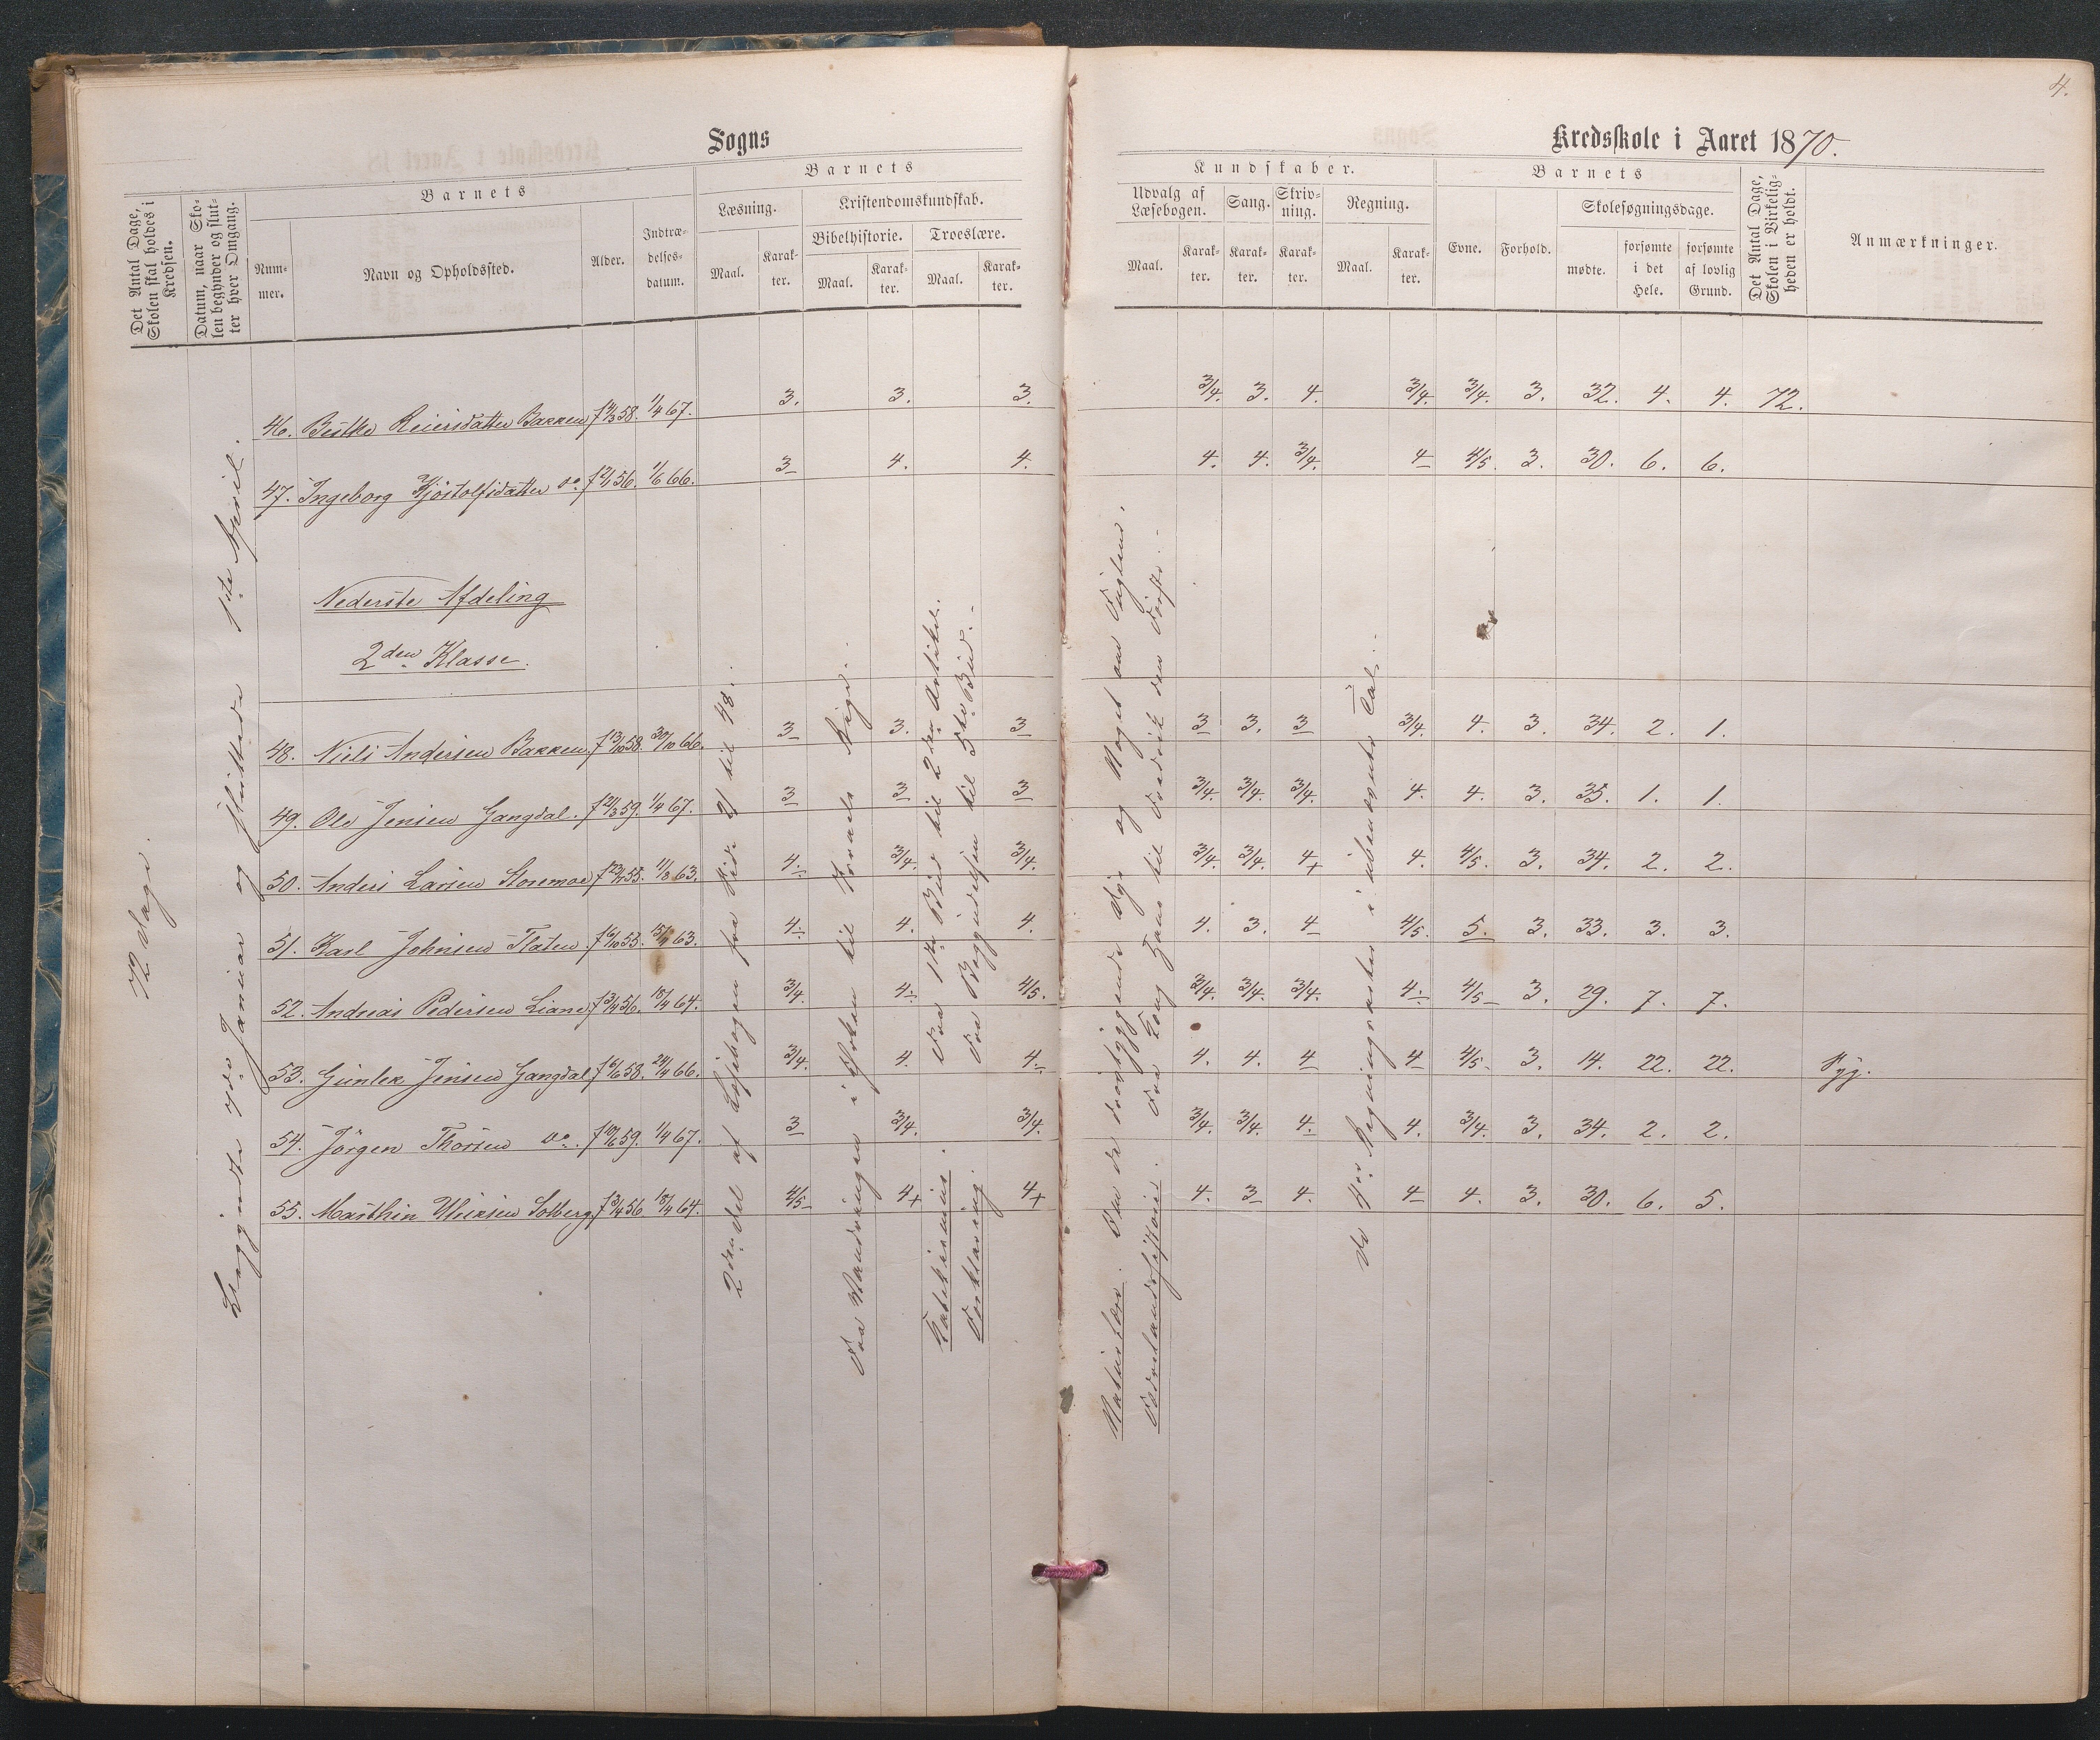 4.
Sogns
Kredsskole i Aaret 1870.
Det Antal Dage, Skolen skal holdes i Kredsen.
Datum, naar Skolen begynder og slutter hver Omgang.
Barnets
Nummer.
Navn og Opholdssted.
Alder.
Indtrædelsesdatum.
Barnets
Læsning.
Maal.
Karakter.
Kristendomskundskab.
Bibelhistorie.
Maal.
Karakter.
Troeslære.
Maal.
Karakter.
Kundskaber.
Udvalg af Læsebogen.
Maal.
Karakter.
Sang.
Karakter.
Skrivning.
Karakter.
Regning.
Maal.
Karakter.
Barnets
Evne.
Forhold.
Skolesøgningsdage.
mødte.
forsømte i det Hele.
forsømte af lovlig Grund.
Det Antal Dage, Skolen i Virkeligheden er holdt.
Anmærkninger.
72 Dage.
Begyndte 7de Januar og sluttede 1ste April.
46. Reiersdatter Bakken f 58. 1/4 67. 3. 3. 3. 3/4. 3. 4. 3/4. 3/4. 3. 32. 4. 4. 72.
47. Ingeborg Kjøstolfsdatter do f 56. 1/6 66. 3 4. 4. 4. 4. 3/4. 4 4/5. 3. 30. 6. 6.
Nederste Afdeling
2den Klasse.
48. Niels Andersen Bakken. f 13/10 58. 30/10 66. 3 3. 3 3 3. 3 3/4. 4. 3. 34. 2. 1.
49. Ole Jensen Gangdal. f 21/3 59. 1/4 67. 3 3 3 3/4. 3/4. 3/4. 4. 4. 3. 35. 1. 1.
50. Anders Larsen Storemoe f 55. 11/8 63. 4 3/4. 3/4. 3/4. 3/4. 4+ 4. 4/5. 3. 34. 2. 2.
51. Karl Johnsen Flaten. f 6/10 55. 63. 4 4. 4. 4. 3. 4 4/5. 5. 3. 33. 3. 3.
52. Andreas Pedersen Liane f 3/4 56. 18/4 64. 3/4. 4 4/5. 3/4. 3/4. 3/4. 4 4/5 3. 29. 7. 7.
53. Gunlek Jensen Gangdal f 6/6 58. 24/4 66. 3/4. 4. 4 4. 4. 4 4 4/5. 3. 14. 22. 22. Syg.
54. Jörgen Thorsen do. f 59. 1/4 67. 3 3/4. 3/4. 3/4. 3/4. 4. 4. 3/4. 3. 34. 2. 2.
55. Marthin Ulriksen Solberg f 3/4 56 18/4 64. 4/5 4+ 4+ 4. 3 4. 4 4. 3. 30. 6. 5.
2den Del af Læsebogen fra Side 21 til 48.
Fra Vandringen i Ørken til Israels Rige.
Katekismus. Fra 1ste Bud til 2den Artikel.
Forklaring. Fra Begyndelsen til 5te Bud.
Naturlære. Om de Dyr og Noget om Fuglene.
Fædrelandshistorie. Fra Kong Hans til Fredrik den Første.
De 4re Regningsarter i ubenævnte Tal.